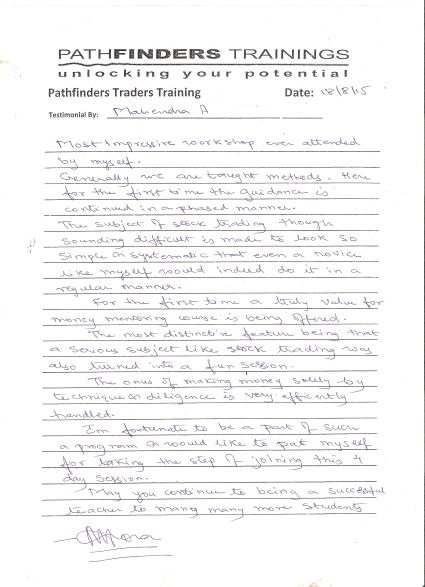 PATHFINDERS TRAININGS
unlocking your potential
Pathfinders Traders Training Date: 18/8/15
Testimonial By: Mahendra A
Most Impressive workshop ever attended
by myself.
Generally we are taught methods. Here
for the first time the guidance is
continued in a phased manner.
The subject of stock trading though
sounding difficult is made to look so
simple & systematic that even a novice
like myself would indeed do it in a
regular manner.
For the first time a truly value for
money mentoring course is being offered.
The most distinctive feature being that
a serious subject like stock trading was
also turned into a fun session.
The onus of making money solely by
technique & diligence is very efficiently
handled.
I'm fortunate to be a part of such
a program & would like to pat myself
for taking the step of joining this 4
day session.
May you continue to being a successful
teacher to many many more students